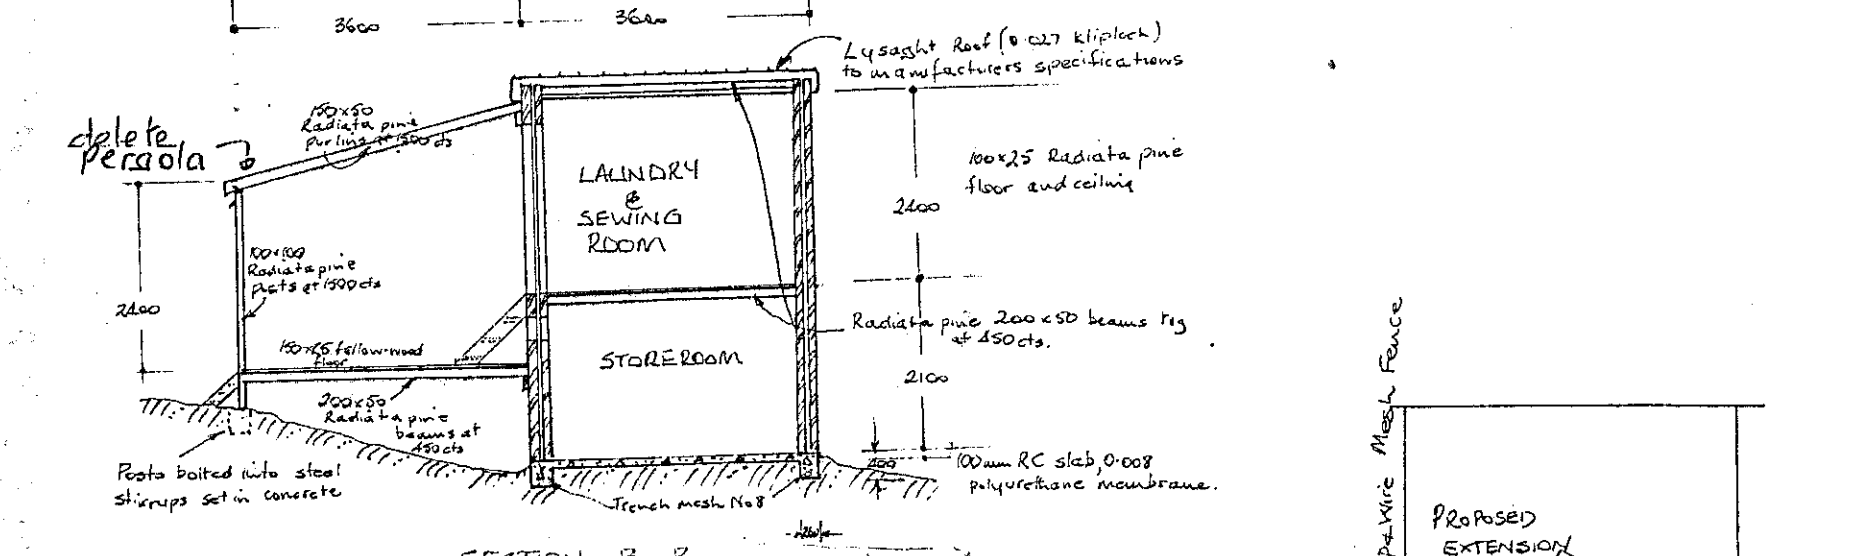 3600
3600
Lysaght Roof (0.027 kliplock)
to manufacturers specifications
150x50
Radiata pine
purlins at 1500 cts
delete
pergola
LAUNDRY
&
SEWING
ROOM
100x25 Radiata pine
floor and ceiling
2400
100x100
Radiata pine
posts at 1500 cts
2400
Radiata pine 200x50 beams
at 450 cts.
floor
STOREROOM
2100
200x50
Radiata pine
beams at
450 cts
Posts bolted into steel
stirrups set in concrete
400
100mm RC slab, 0.008
polyurethane membrane.
Trench mesh No 8
SECTION B-B
Wire Mesh Fence
PROPOSED
EXTENSION